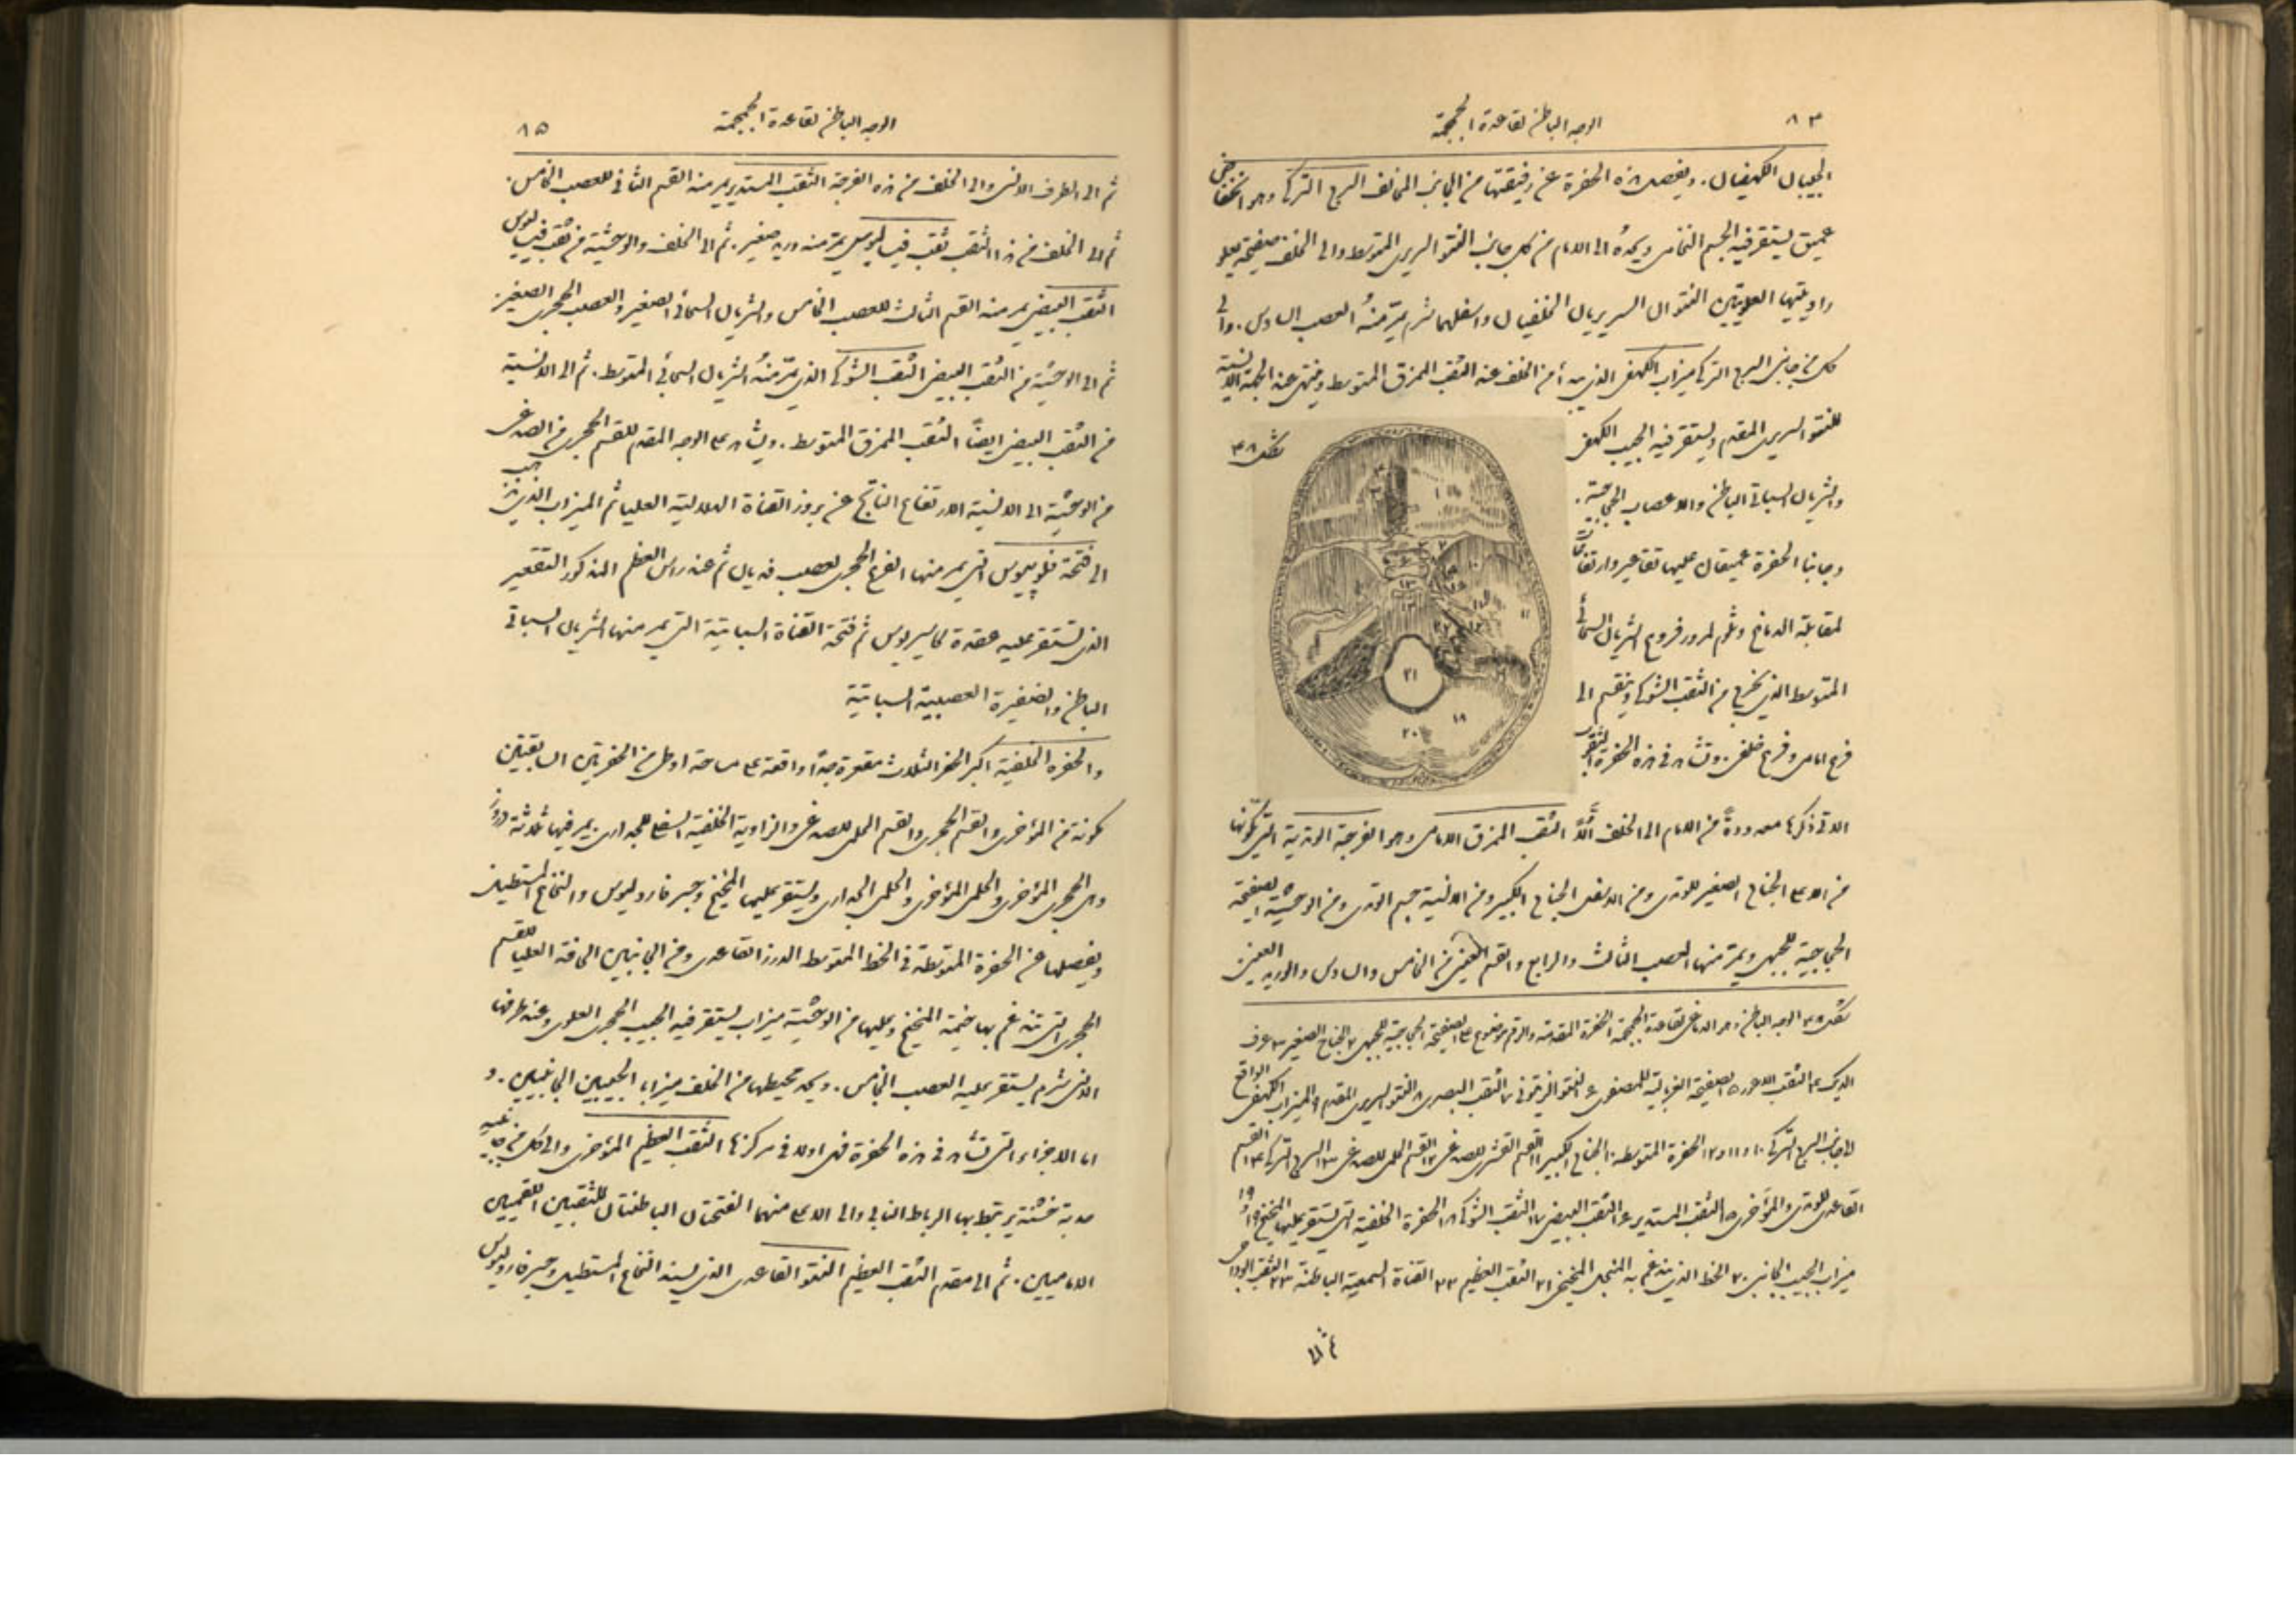 ٨٤
الوجه الباطن لقاعدة الجمجمة
الجيبان الكهفيان. ويفصل هذه الحفرة عن رفيقتها من الجانب المخالف السرج التركي وهو انخفاض
عميق يستقر فيه الجسم النخامي ويحده الى الامام من كل جانب النتو السريري المتوسط والى الخلف صفيحة يعلو
زاويتيها العلويتين النتوان السريريان الخلفيان واسفلهما شرم يمر منه العصب السادس. والى
كل من جانبي السرج التركي ميزاب الكهفي الذي يبدأ من الخلف عند الثقب الممزق المتوسط وينتهي عند الجهة الانسية
للنتو السريري المقدم ويستقر فيه الجيب الكهفي
والشريان السباتي الباطن والاعصاب الحجاجية.
وجانبا الحفرة عميقان عليهما تقاعير وارتفاعات
لمقابلة الدماغ وثلوم لمرور فروع الشريان السحائي
المتوسط الذي يخرج من الثقب الشوكي وينقسم الى
فرع امامي وفرع خلفي. وتشاهد في هذه الحفرة الثقوب
شكل ٤٨
الاتي ذكرها معدودةً من الامام الى الخلف اوّلاً الثقب الممزق الامامي وهو الفرجة الوتدية التي يكونها
من الاعلى الجناح الصغير للوتدي ومن الاسفل الجناح الكبير ومن الانسية جسم الوتدي ومن الوحشية الصفيحة
الحجاجية للجبهي ويمر منها العصب الثالث والرابع والقسم العيني من الخامس والسادس والوريد العيني
شكل ٤٨ الوجه الباطن اي الدماغي لقاعدة الجمجمة ١ الحفرة المقدمة والرقم موضوع على الصفيحة الحجاجية للجبهي ٢ الجناح الصغير ٣ عرف
الديك ٤ الثقب الاعور ٥ الصفيحة الغربالية للمصفوي ٦ النتو الزيتوني ٧ الثقب البصري ٨ النتو السريري المقدم ٩ الميزاب الكهفي الواقع
الى جانب السرج التركي ١٠ و ١١ و ١٢ الحفرة المتوسطة ١٠ الجناح الكبير ١١ القسم القشري للصدغي ١٢ القسم الحلمي للصدغي ١٣ السرج التركي ١٤ القسم
القاعدي للوتدي والمؤخري ١٥ الثقب المستدير ١٦ الثقب البيضي ١٧ الثقب الشوكي ١٨ الحفرة الخلفية التي يستقر عليها المخيخ ١٩ و ١٩
ميزاب الجيب الجانبي ٢٠ الخط الذي يندغم به المنجل المخيخي ٢١ الثقب العظيم ٢٢ القناة السمعية الباطنة ٢٣ الثقب الوداجي
الوجه الباطن لقاعدة الجمجمة
٨٥
ثم الى الطرف الانسي والى الخلف من هذه الفرجة الثقب المستدير يمر منه القسم الثاني للعصب الخامس.
ثم الى الخلف من هذا الثقب ثقب فيساليوس يمر منه وريد صغير. ثم الى الخلف والوحشية من ثقب فيساليوس
الثقب البيضي يمر منه القسم الثالث للعصب الخامس والشريان السحائي الصغير والعصب الحجري الصغير.
ثم الى الوحشية من الثقب البيضي الثقب الشوكي الذي يمر منه الشريان السحائي المتوسط. ثم الى الانسية
من الثقب البيضي ايضًا الثقب الممزق المتوسط. ويشاهد على الوجه المقدم للقسم الحجري من الصدغي
من الوحشية الى الانسية الارتفاع الناتج عن بروز القناة الهلالية العليا ثم الميزاب الذي يذهب
الى فتحة فلوبيوس التي يمر منها الفرع الحجري لعصب فديان ثم عند راس العظم المذكور التقعير
الذي تستقر عليه عقدة كاسيريوس ثم فتحة القناة السباتية التي يمر منها الشريان السباتي
الباطن والضفيرة العصبية السباتية
والحفرة الخلفية اكبر الحفر الثلاث مقعرة جدًا واقعة على مساحة اوطى من الحفرتين السابقتين
مكونة من المؤخري والقسم الحجري والقسم الحلمي للصدغي والزاوية الخلفية السفلى للجداري. يمر فيها ثلاثة دروز
وهي الحجري المؤخري والحلمي المؤخري والحلمي الجداري ويستقر عليها المخيخ وجسر فاروليوس والنخاع المستطيل
ويفصلها عن الحفرة المتوسطة في الخط المتوسط الدرز القاعدي ومن الجانبين الحافة العليا للقسم
الحجري التي تندغم بها خيمة المخيخ ويليها من الوحشية ميزاب يستقر فيه الجيب الحجري العلوي وعند طرفها
الانسي شرم يستقر عليه العصب الخامس. ويحد محيطها من الخلف ميزابا الجيبين الجانبيين. و
اما الاجزاء التي تشاهد في هذه الحفرة فهي اولا في مركزها الثقب العظيم المؤخري والى كل من جانبيه
حدبة خشنة يرتبط بها الرباط النابي والى الاعلى منهما الفتحتان الباطنتان للثقبين اللقميين
الاماميين. ثم الى مقدم الثقب العظيم النتو القاعدي الذي يسند النخاع المستطيل وجسر فاروليوس